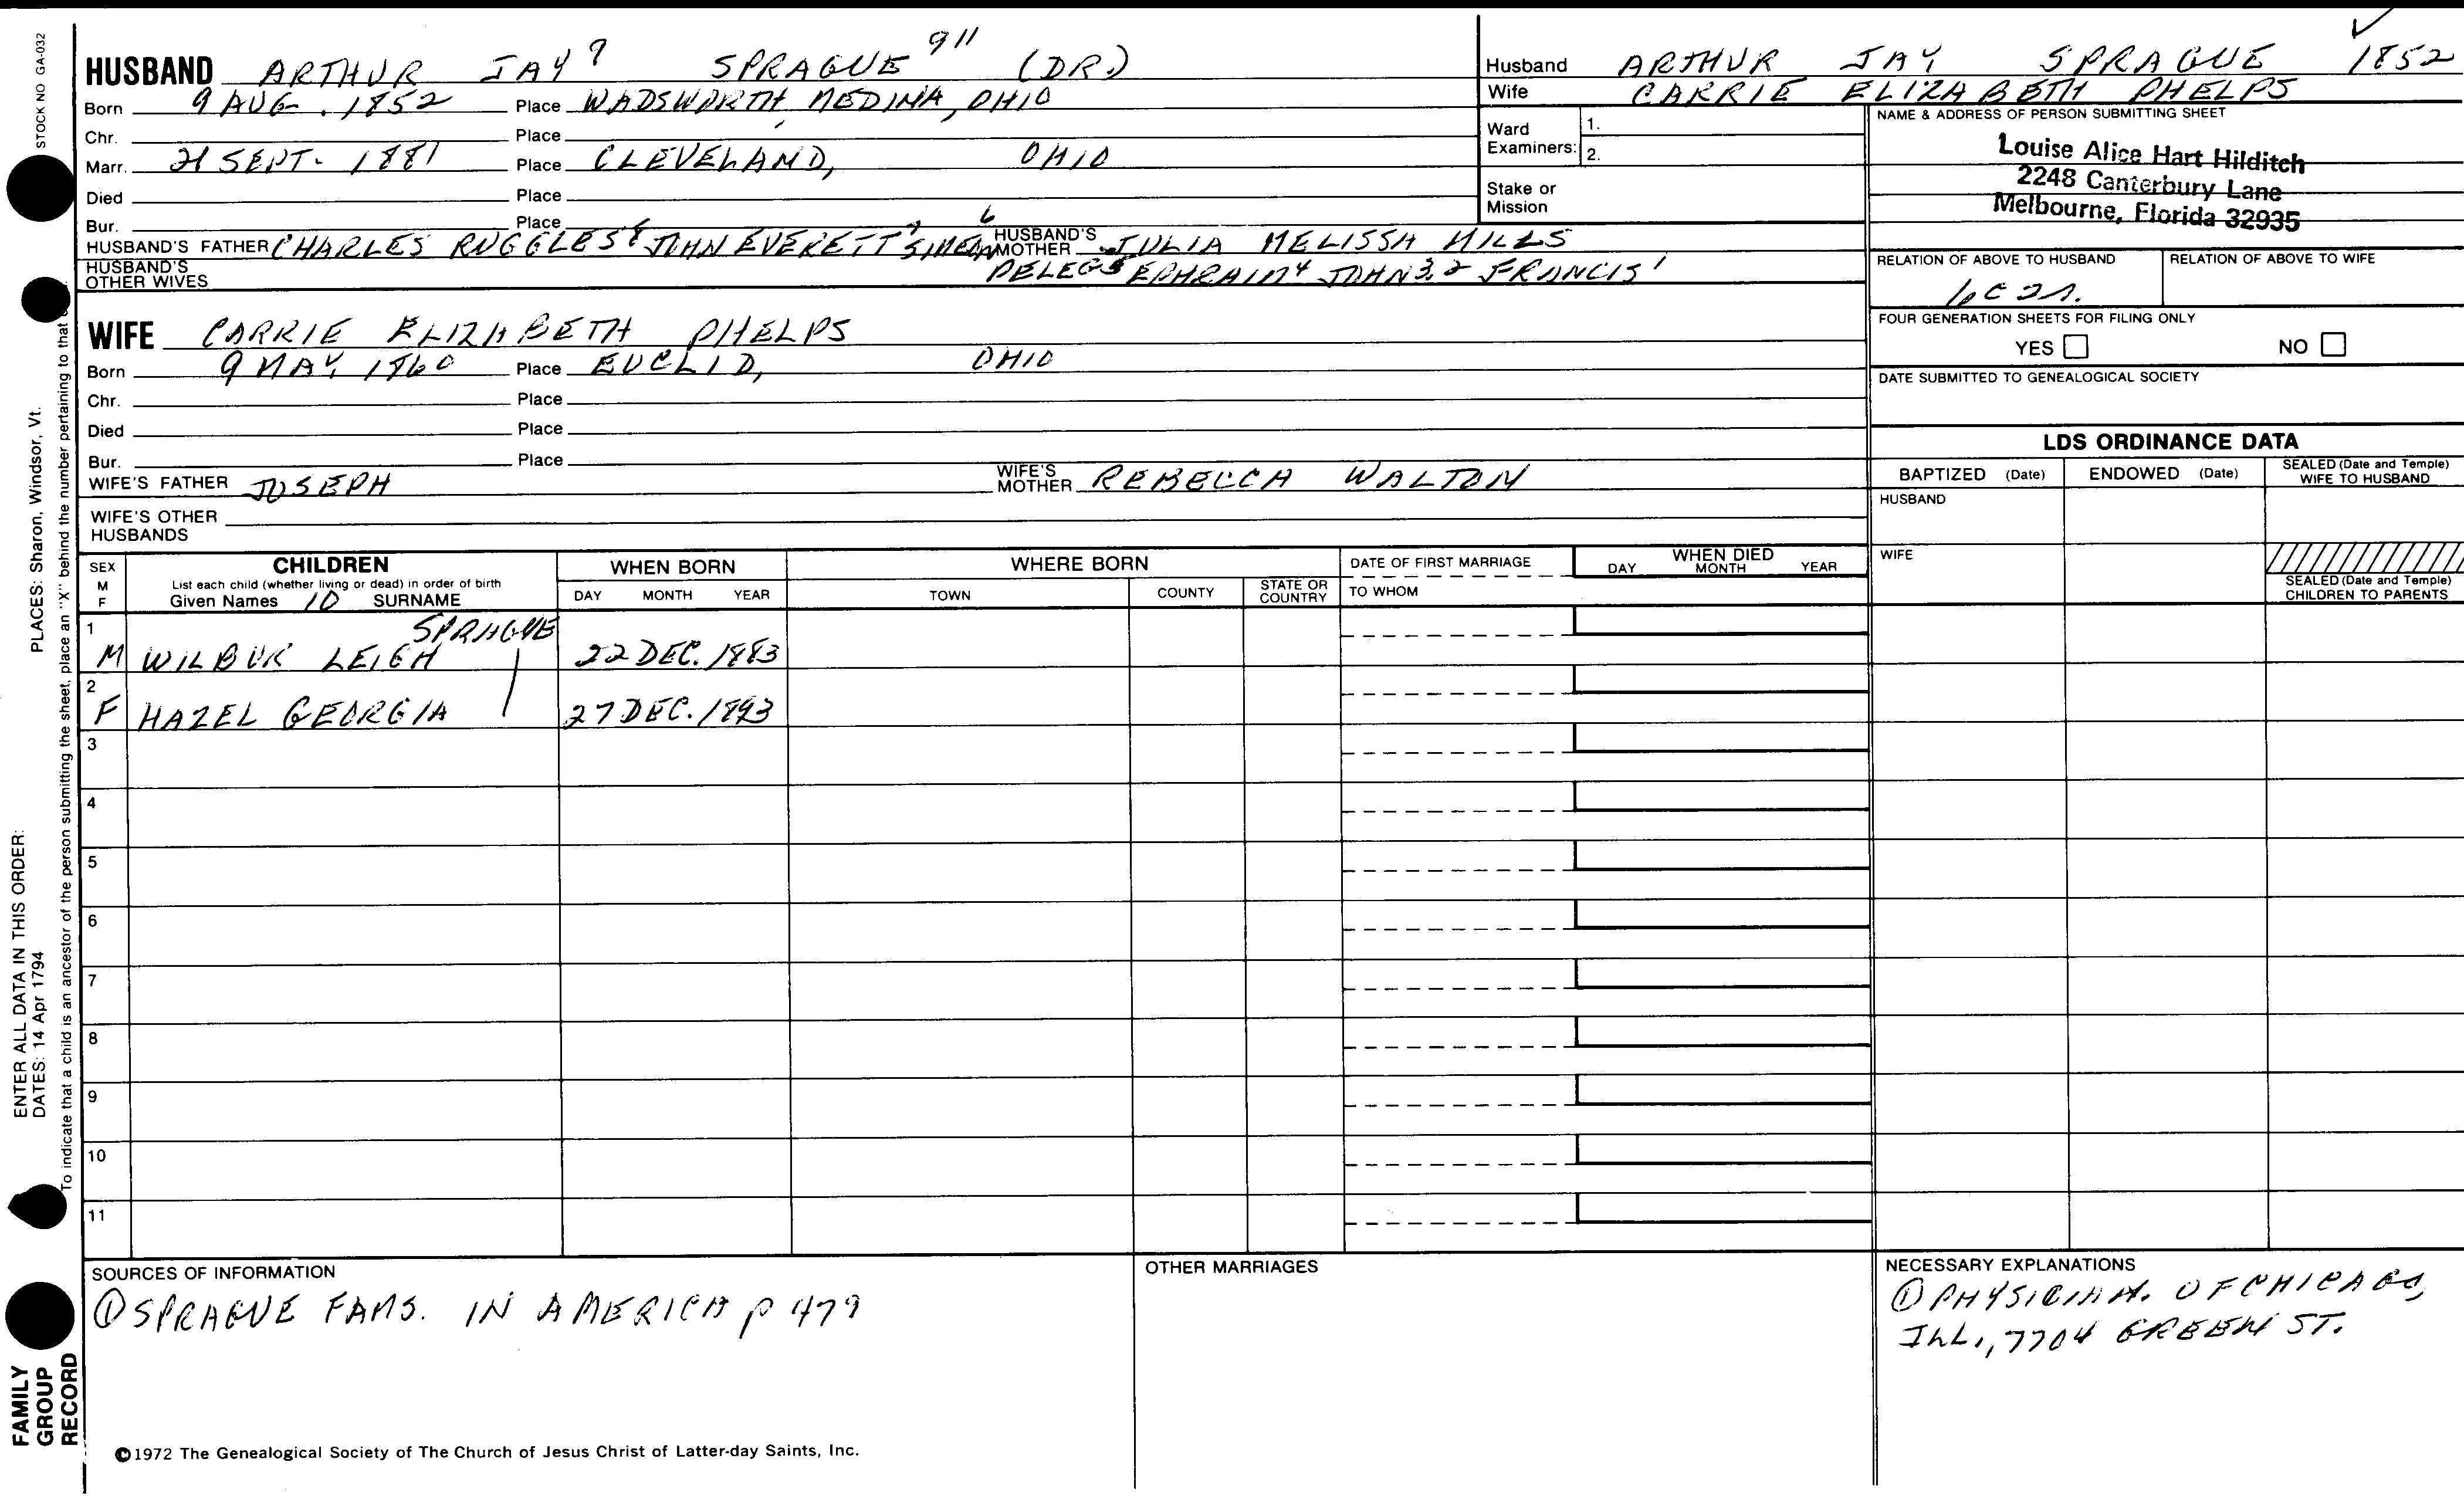 STOCK NO GA-032
HUSBAND ARTHUR JAY 9 SPRAGUE 911 (DR.)
Born 9 AUG. 1852 Place WADSWORTH, MEDINA, OHIO
Chr. Place
Marr. 21 SEPT. 1881 Place CLEVELAND, OHIO
Died Place
Bur. Place
HUSBAND'S FATHER CHARLES RUGGLES 8 JOHN EVERETT 7 SIMEON 6 HUSBAND'S MOTHER JULIA MELISSA MILLS
HUSBAND'S OTHER WIVES PELEG 5 EPHRAIM 4 JOHN 3,2 FRANCIS 1
WIFE CARRIE ELIZABETH PHELPS
Born 9 MAY 1860 Place EUCLID, OHIO
Chr. Place
Died Place
Bur. Place
WIFE'S FATHER JOSEPH WIFE'S MOTHER REBECCA WALTON
WIFE'S OTHER HUSBANDS
Husband ARTHUR JAY SPRAGUE 1852
Wife CARRIE ELIZABETH PHELPS
Ward Examiners: 1.
2.
Stake or Mission
NAME & ADDRESS OF PERSON SUBMITTING SHEET
Louise Alice Hart Hilditch
2248 Canterbury Lane
Melbourne, Florida 32935
RELATION OF ABOVE TO HUSBAND RELATION OF ABOVE TO WIFE
6C 2R.
FOUR GENERATION SHEETS FOR FILING ONLY
YES NO
DATE SUBMITTED TO GENEALOGICAL SOCIETY
LDS ORDINANCE DATA
BAPTIZED (Date) ENDOWED (Date) SEALED (Date and Temple) WIFE TO HUSBAND
HUSBAND
WIFE
SEALED (Date and Temple) CHILDREN TO PARENTS
SEX M F
CHILDREN
List each child (whether living or dead) in order of birth
Given Names 10 SURNAME
WHEN BORN
DAY MONTH YEAR
WHERE BORN
TOWN COUNTY STATE OR COUNTRY
DATE OF FIRST MARRIAGE
TO WHOM
WHEN DIED
DAY MONTH YEAR
1 M WILBUR LEIGH SPRAGUE 22 DEC. 1883
2 F HAZEL GEORGIA 27 DEC. 1893
3
4
5
6
7
8
9
10
11
SOURCES OF INFORMATION
① SPRAGUE FAMS. IN AMERICA p 479
OTHER MARRIAGES
NECESSARY EXPLANATIONS
① PHYSICIAN. OF CHICAGO,
ILL., 7704 GREEN ST.
©1972 The Genealogical Society of The Church of Jesus Christ of Latter-day Saints, Inc.
PLACES: Sharon, Windsor, Vt.
ENTER ALL DATA IN THIS ORDER:
DATES: 14 Apr 1794
To indicate that a child is an ancestor of the person submitting the sheet, place an "X" behind the number pertaining to that
FAMILY
GROUP
RECORD